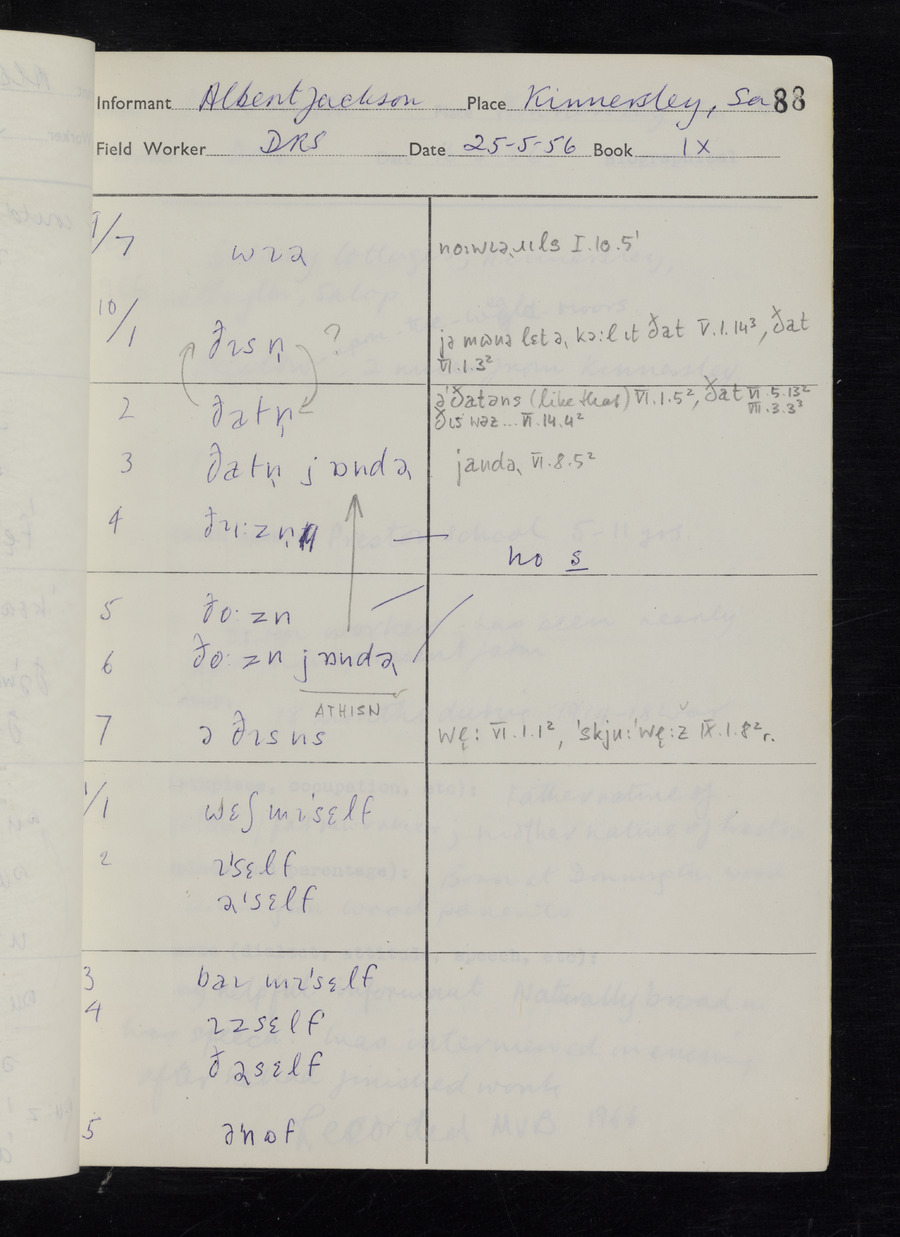 Informant Albert Jackson Place Kinnersley, Sa 88
Field Worker DRS Date 25-5-56 Book IX
9/7 wɪə I.10.5¹
10/1 ðɪsn̩ ? jə mʊnə let ə kɔːl ɪt ðat V.1.14³, ðat
VI.1.3²
2 ðatn̩ ə'ðatəns (like that) VI.1.5², ðat VI.5.13²
VII.3.3³
ðɪs wəz... VI.14.4²
3 ðatn̩ jɒndə jandə VI.8.5²
4 ðɪːzn̩
no s
5 ðoːzn
6 ðoːzn jɒndə
ATHISN
7 ə ðɪsns wę: VI.1.1², 'skjuː'wę:ž IX.1.8²r.
1/1 wɛʃ mɪ'sɛlf
2 ɪ'sɛlf
ə'sɛlf
3 baɪ mɪ'sɛlf
4 ɪzsɛlf
ðəsɛlf
5 ə'nʊf